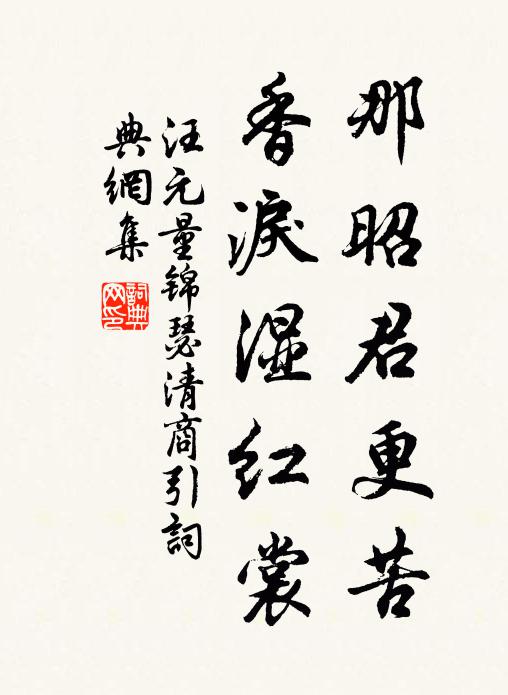 那昭君更苦
香淚湿紅裳
汪元量錦瑟清商引詞
典網集
詞典
网印